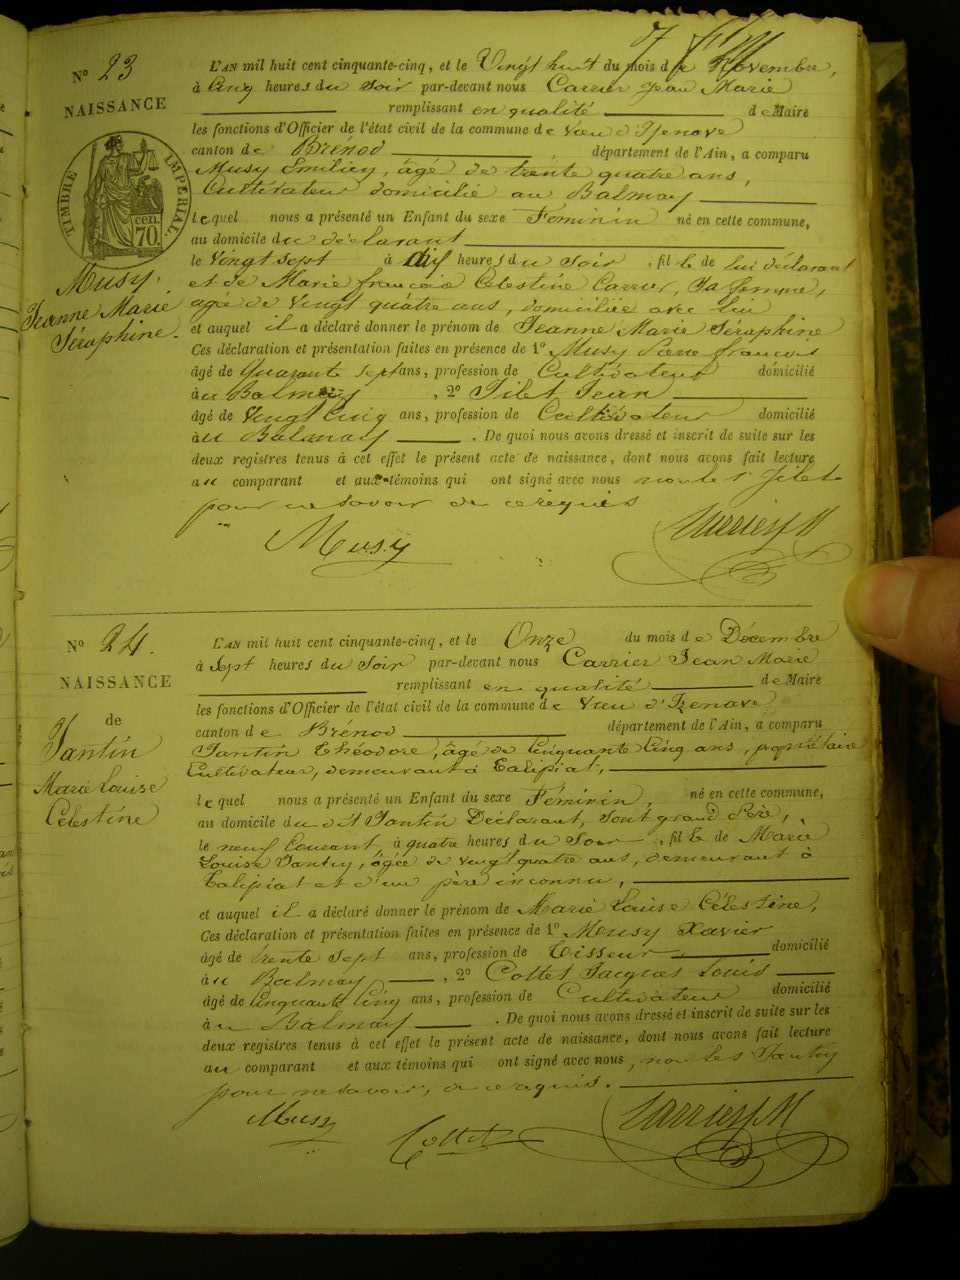 N° 23
NAISSANCE
TIMBRE IMPERIAL.
cen. 70.
Musy,
Jeanne Marie
Séraphine.
L'AN mil huit cent cinquante-cinq, et le Vingt huit du mois de Novembre,
à Cinq heures du Soir par-devant nous Carrier Jean Marie
remplissant en qualité de Maire
les fonctions d'Officier de l'état civil de la commune de Vieu d'Izenave
canton de Brénod, département de l'Ain, a comparu
Musy âgé de trente quatre ans,
Cultivateur domicilié au Balmay
lequel nous a présenté un Enfant du sexe Féminin né en cette commune,
au domicile du déclarant
le Vingt sept à dix heures du Soir, fille de lui déclarant
et de Marie francoise Célestine Carrier, Sa femme,
agée de Vingt quatre ans, domiciliée avec lui
et auquel il a déclaré donner le prénom de Jeanne Marie Séraphine
Ces déclaration et présentation faites en présence de 1° Musy Pierre francois
âgé de Quarante sept ans, profession de Cultivateur domicilié
au Balmay, 2° Jean
âgé de Vingt Cinq ans, profession de Cultivateur domicilié
au Balmay. De quoi nous avons dressé et inscrit de suite sur les
deux registres tenus à cet effet le présent acte de naissance, dont nous avons fait lecture
au comparant et aux témoins qui ont signé avec nous non le s.r
pour ne savoir de ce requis
Musy Carrier J M
N° 24.
NAISSANCE
de
Tantin
Marie Louise
Célestine
L'AN mil huit cent cinquante-cinq, et le Onze du mois de Décembre
à Sept heures du Soir par-devant nous Carrier Jean Marie
remplissant en qualité de Maire
les fonctions d'Officier de l'état civil de la commune de Vieu d'Izenave
canton de Brénod département de l'Ain, a comparu
Tantin Théodore, âgé de Cinquante Cinq ans, propriétaire
Cultivateur, demeurant à Talipiat,
lequel nous a présenté un Enfant du sexe Féminin, né en cette commune,
au domicile du dit Tantin Déclarant, Sont grand Père,
le neuf Courant, à quatre heures du Soir, fille de Marie
Louise Tantin, âgée de Vingt quatre ans, demeurant à
Talipiat et d'un père inconnu,
et auquel il a déclaré donner le prénom de Marie Louise Célestine,
Ces déclaration et présentation faites en présence de 1° Musy Xavier
âgé de trente sept ans, profession de Tisseur domicilié
au Balmay, 2° Cottet Jacques Louis
âgé de Cinquante Cinq ans, profession de Cultivateur domicilié
au Balmay. De quoi nous avons dressé et inscrit de suite sur les
deux registres tenus à cet effet le présent acte de naissance, dont nous avons fait lecture
au comparant et aux témoins qui ont signé avec nous, non le s Tantin
pour ne savoir, de ce requis.
Musy Cottet Carrier J M